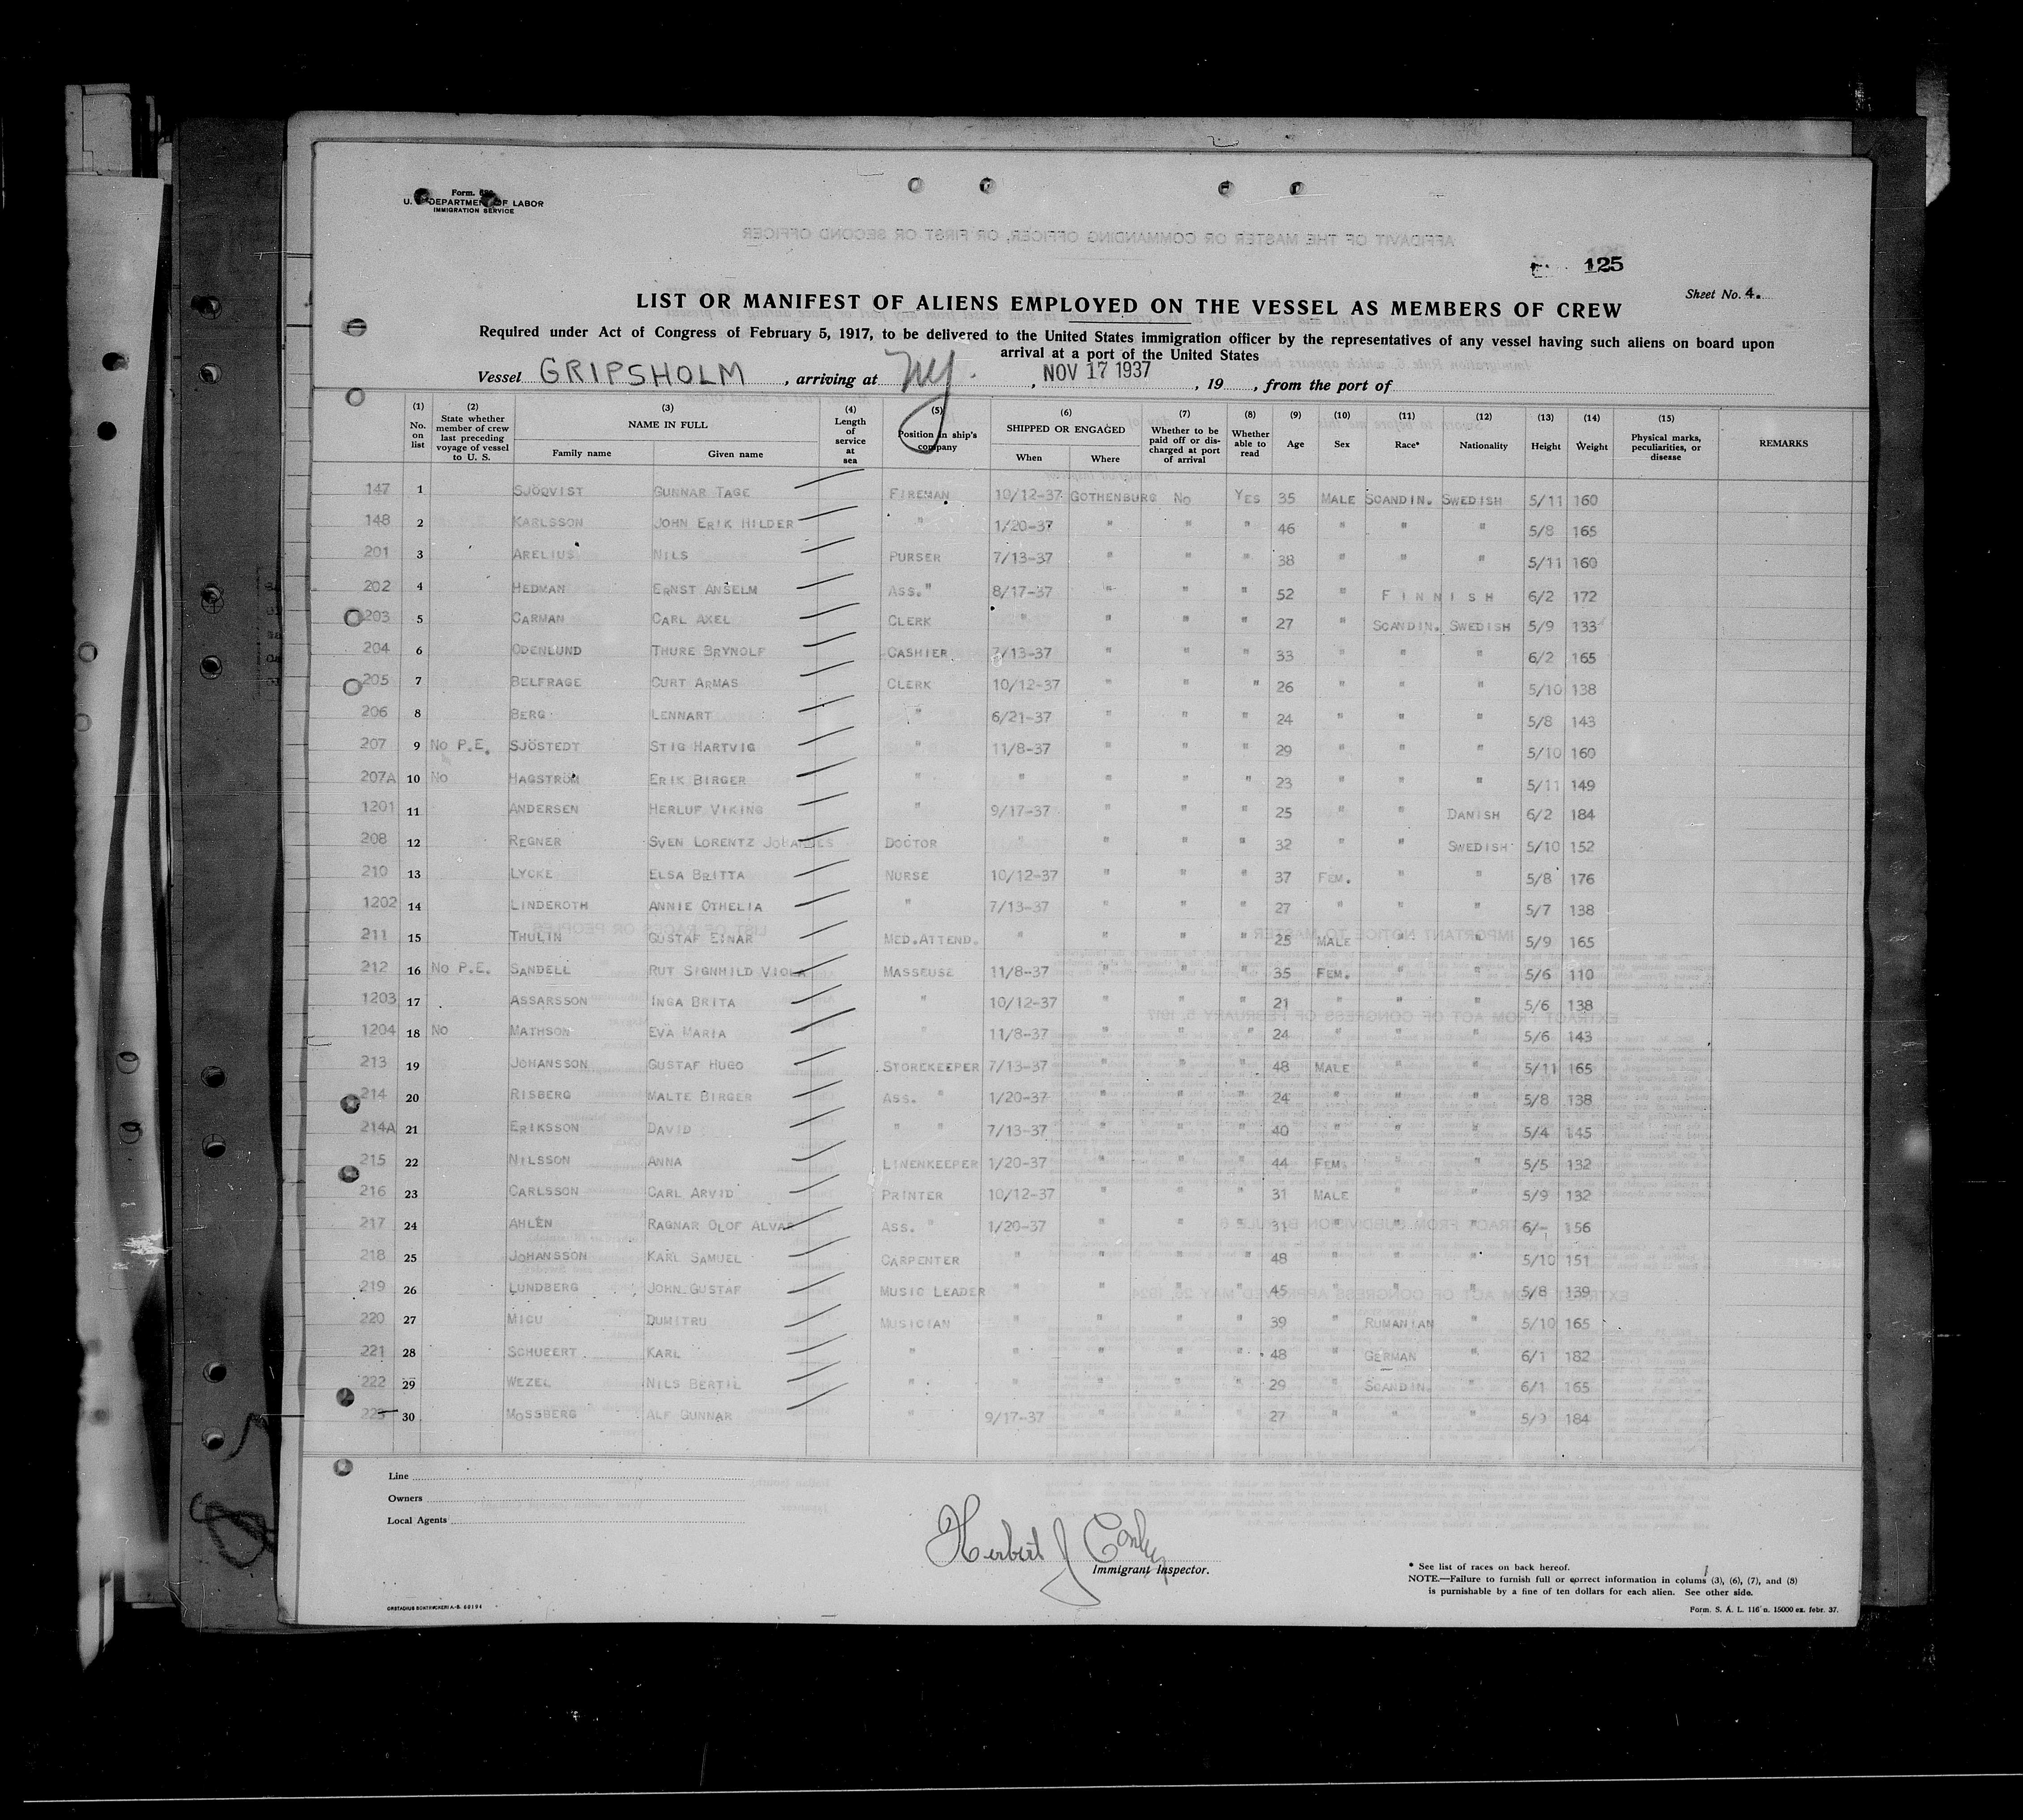 Form. 689
U. S. DEPARTMENT OF LABOR
IMMIGRATION SERVICE
AFFIDAVIT OF THE MASTER OR COMMANDING OFFICER, OR FIRST OR SECOND OFFICER
125
Sheet No. 4.
LIST OR MANIFEST OF ALIENS EMPLOYED ON THE VESSEL AS MEMBERS OF CREW
Required under Act of Congress of February 5, 1917, to be delivered to the United States immigration officer by the representatives of any vessel having such aliens on board upon
arrival at a port of the United States
Vessel GRIPSHOLM, arriving at NY., NOV 17 1937, 19, from the port of
(1) No. on list (2) State whether member of crew last preceding voyage of vessel to U. S. (3) NAME IN FULL Family name Given name (4) Length of service at sea (5) Position in ship's company (6) SHIPPED OR ENGAGED When Where (7) Whether to be paid off or discharged at port of arrival (8) Whether able to read (9) Age (10) Sex (11) Race* (12) Nationality (13) Height (14) Weight (15) Physical marks, peculiarities, or disease REMARKS
147 1 SJÖQVIST GUNNAR TAGE FIREMAN 10/12-37 GOTHENBURG No YES 35 MALE SCANDIN. SWEDISH 5/11 160
148 2 KARLSSON JOHN ERIK HILDER " 1/20-37 " " " 46 " " " 5/8 165
201 3 ARELIUS NILS PURSER 7/13-37 " " " 38 " " " 5/11 160
202 4 HEDMAN ERNST ANSELM ASS." 8/17-37 " " " 52 " FINNISH 6/2 172
203 5 CARMAN CARL AXEL CLERK " " " " 27 " SCANDIN. SWEDISH 5/9 133
204 6 ODENLUND THURE BRYNOLF CASHIER 7/13-37 " " " 33 " " " 6/2 165
205 7 BELFRAGE CURT ARMAS CLERK 10/12-37 " " " 26 " " " 5/10 138
206 8 BERG LENNART " 6/21-37 " " " 24 " " " 5/8 143
207 9 No P.E. SJÖSTEDT STIG HARTVIG " 11/8-37 " " " 29 " " " 5/10 160
207A 10 No HAGSTRÖM ERIK BIRGER " " " " " 23 " " " 5/11 149
1201 11 ANDERSEN HERLUF VIKING " 9/17-37 " " " 25 " " DANISH 6/2 184
208 12 REGNER SVEN LORENTZ JOHANNES DOCTOR " " " " 32 " " SWEDISH 5/10 152
210 13 LYCKE ELSA BRITTA NURSE 10/12-37 " " " 37 FEM. " " 5/8 176
1202 14 LINDEROTH ANNIE OTHELIA " 7/13-37 " " " 27 " " " 5/7 138
211 15 THULIN GUSTAF EINAR MED.ATTEND. " " " " 25 MALE " " 5/9 165
212 16 No P.E. SANDELL RUT SIGNHILD VIOLA MASSEUSE 11/8-37 " " " 35 FEM. " " 5/6 110
1203 17 ASSARSSON INGA BRITA " 10/12-37 " " " 21 " " " 5/6 138
1204 18 No MATHSON EVA MARIA " 11/8-37 " " " 24 " " " 5/6 143
213 19 JOHANSSON GUSTAF HUGO STOREKEEPER 7/13-37 " " " 48 MALE " " 5/11 165
214 20 RISBERG MALTE BIRGER ASS. " 1/20-37 " " " 24 " " " 5/8 138
214A 21 ERIKSSON DAVID " " 7/13-37 " " " 40 " " " 5/4 145
215 22 NILSSON ANNA LINENKEEPER 1/20-37 " " " 44 FEM. " " 5/5 132
216 23 CARLSSON CARL ARVID PRINTER 10/12-37 " " " 31 MALE " " 5/9 132
217 24 AHLÉN RAGNAR OLOF ALVAR ASS. " 1/20-37 " " " 31 " " " 6/- 156
218 25 JOHANSSON KARL SAMUEL CARPENTER " " " " 48 " " " 5/10 151
219 26 LUNDBERG JOHN GUSTAF MUSIC LEADER " " " " 45 " " " 5/8 139
220 27 MICU DUMITRU MUSICIAN " " " " 39 " RUMANIAN " 5/10 165
221 28 SCHUBERT KARL " " " " " 48 " GERMAN " 6/1 182
222 29 WEZEL NILS BERTIL " " " " " 29 " SCANDIN. " 6/1 165
223 30 MOSSBERG ALF GUNNAR " 9/17-37 " " " 27 " " " 5/9 184
Line
Owners
Local Agents
Herbert J Conley
Immigrant Inspector.
* See list of races on back hereof.
NOTE.—Failure to furnish full or correct information in colums (3), (6), (7), and (8)
is punishable by a fine of ten dollars for each alien. See other side.
Form. S. A. L. 116 n. 15000 ex. febr. 37.